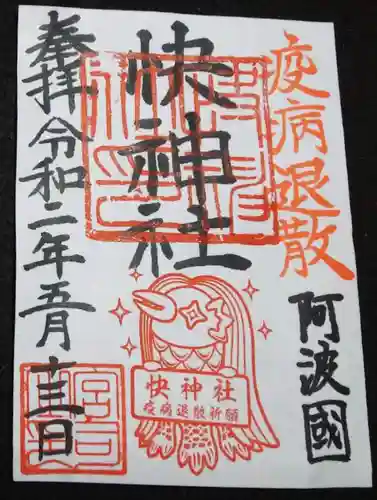 疫病退散
阿波國
快神社
快神社
疫病退散祈願
奉拝 令和二年五月十三日